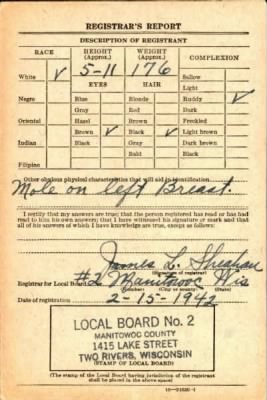 REGISTRAR'S REPORT
DESCRIPTION OF REGISTRANT
RACE HEIGHT (Approx.) WEIGHT (Approx.) COMPLEXION
White ✓ 5-11 176 Sallow
EYES HAIR Light
Negro Blue Blonde Ruddy ✓
Gray Red Dark
Oriental Hazel Brown Freckled
Brown ✓ Black ✓ Light brown
Indian Black Gray Dark brown
Bald Black
Filipino
Other obvious physical characteristics that will aid in identification
Mole on left Breast.
I certify that my answers are true; that the person registered has read or has had
read to him his own answers; that I have witnessed his signature or mark and that
all of his answers of which I have knowledge are true, except as follows:
James L. Sheahan
(Signature of registrar)
Registrar for Local Board #2 Manitowoc Wis
(Number) (City or county) (State)
Date of registration 2-15-1942
LOCAL BOARD No. 2
MANITOWOC COUNTY
1415 LAKE STREET
TWO RIVERS, WISCONSIN
(STAMP OF LOCAL BOARD)
(The stamp of the Local Board having jurisdiction of the registrant
shall be placed in the above space.)